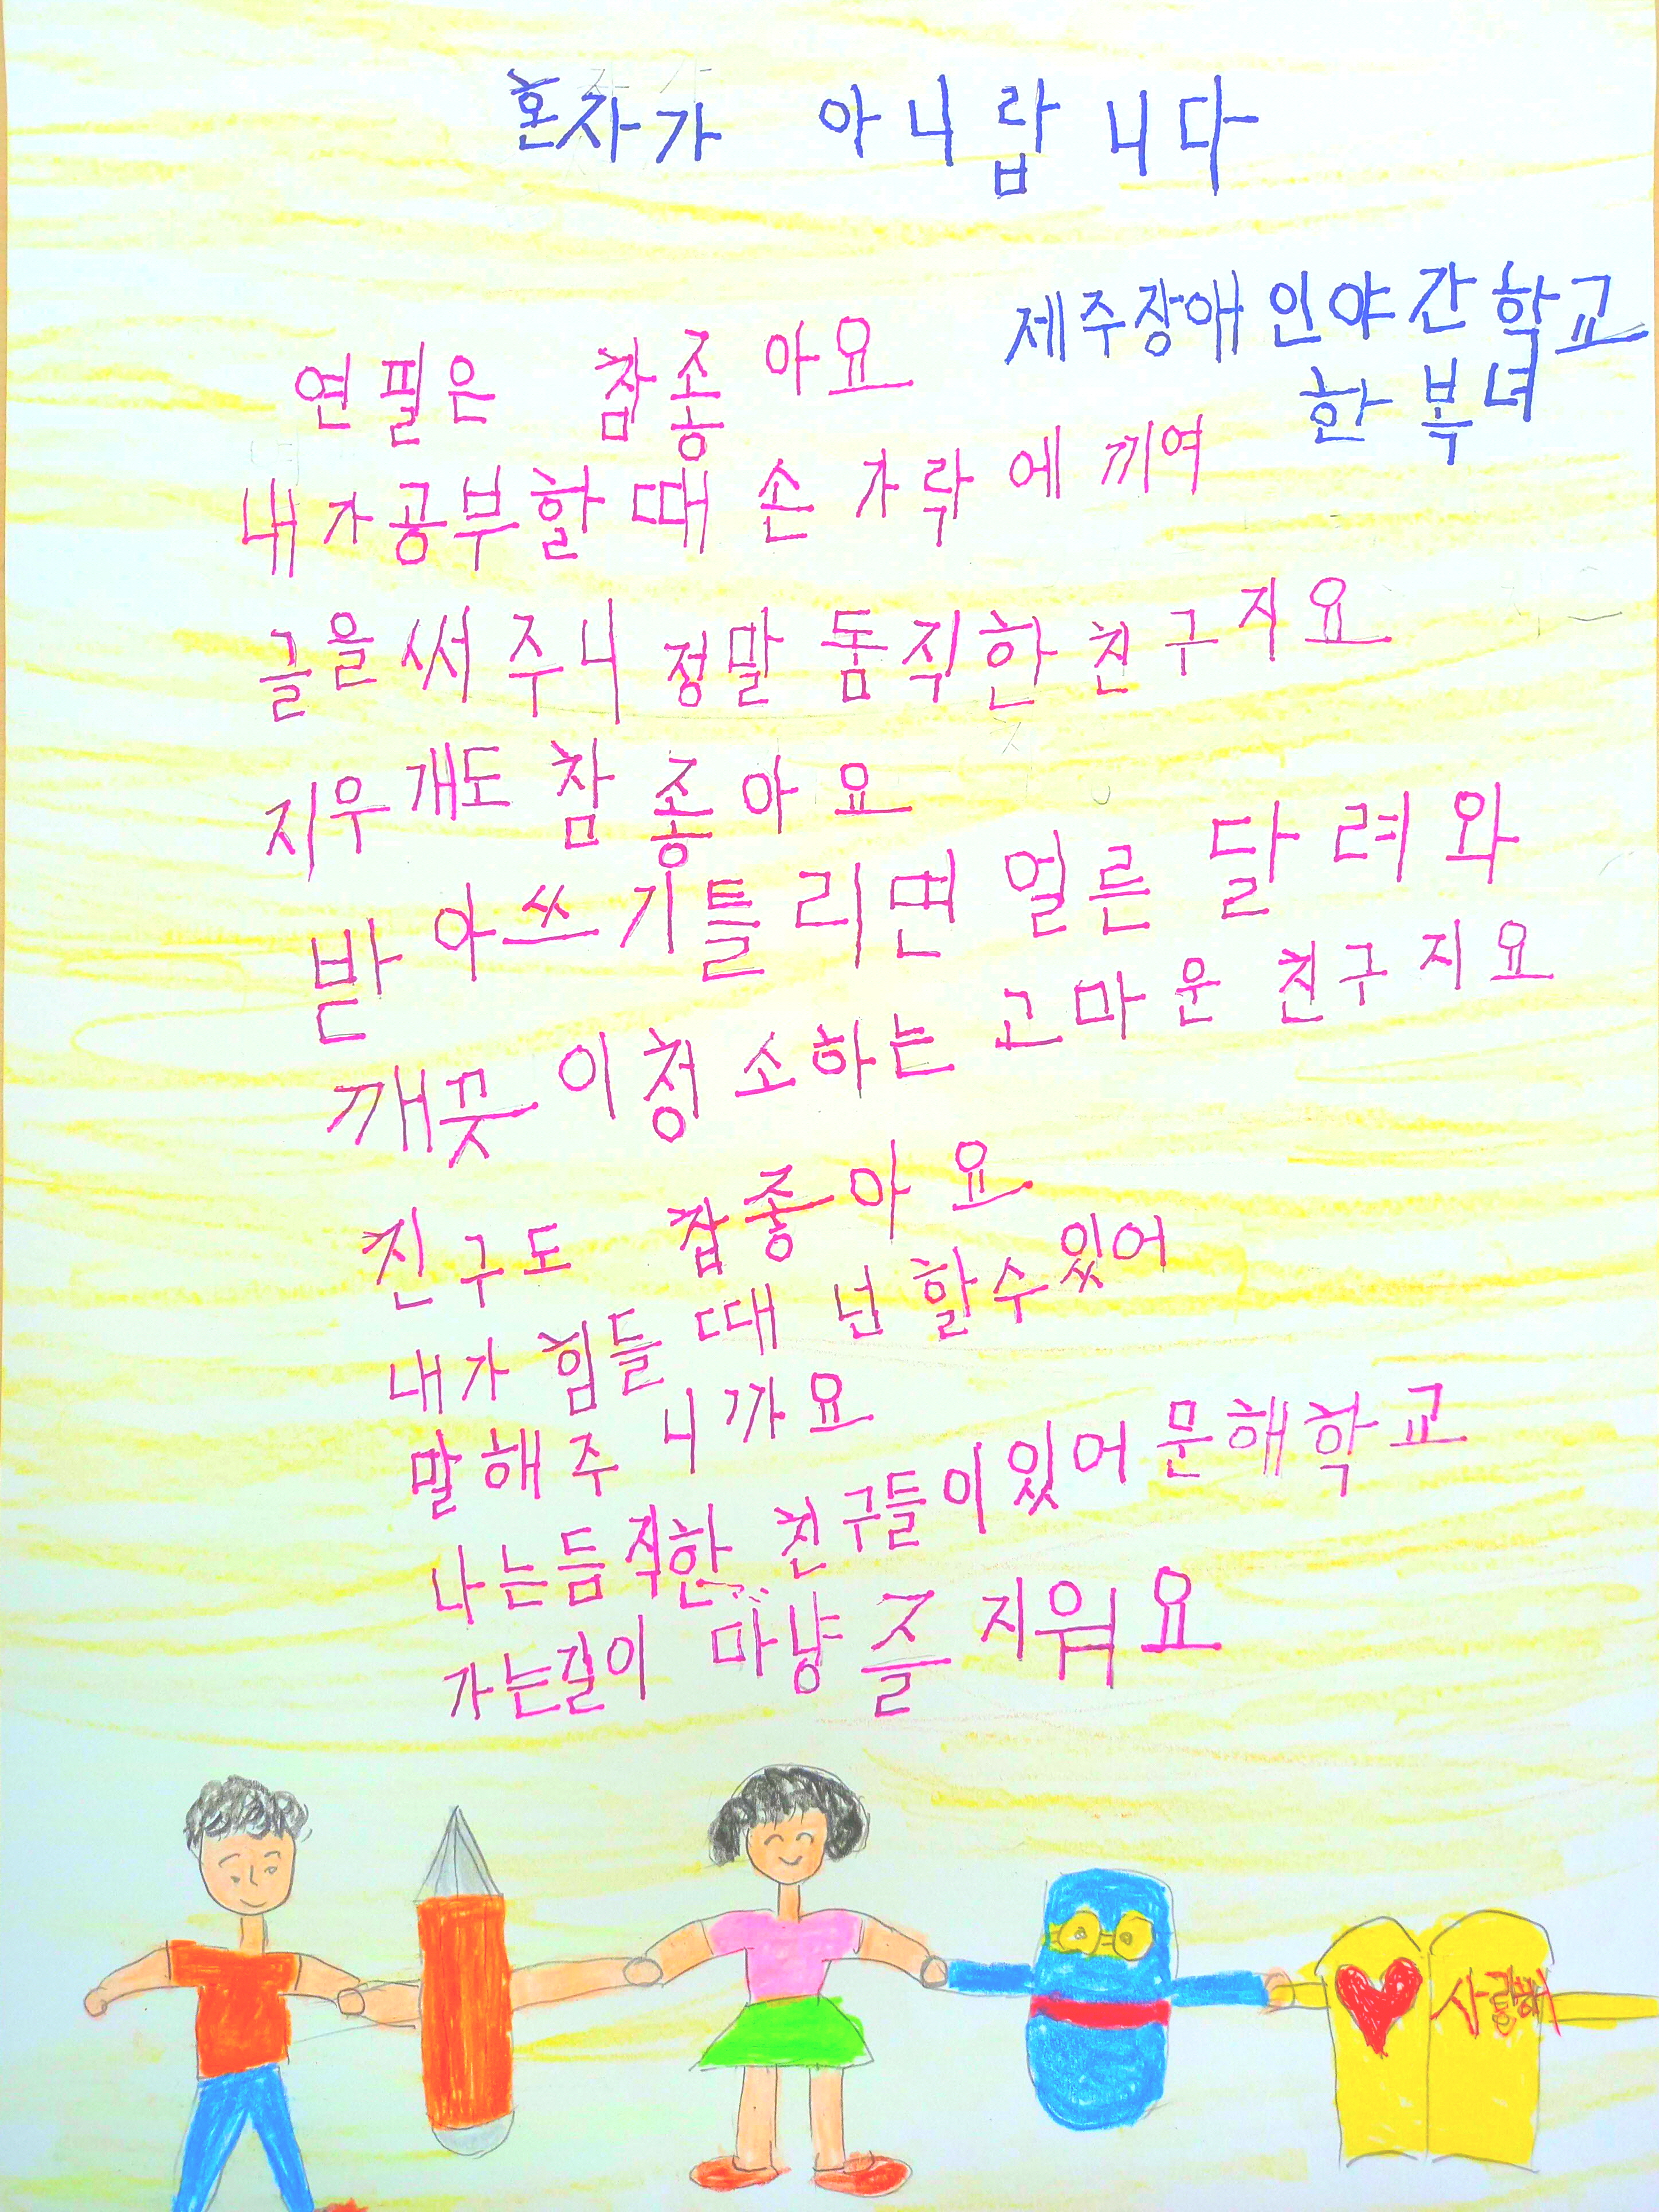 혼자가 아니랍니다
제주장애인야간학교
한복녀
연필은 참좋아요
내가공부할때 손가락에 끼여
글을써주니 정말 둠직한 친구지요
지우개도 참 좋아요
받아쓰기틀리면 얼른 달려와
깨끗이청소하는 고마운 친구지요
친구도 참좋아요
내가 힘들때 넌 할수있어
말해주니까요
나는듬직한 친구들이있어 문해학교
가는길이 마냥 즐거워요
사랑해